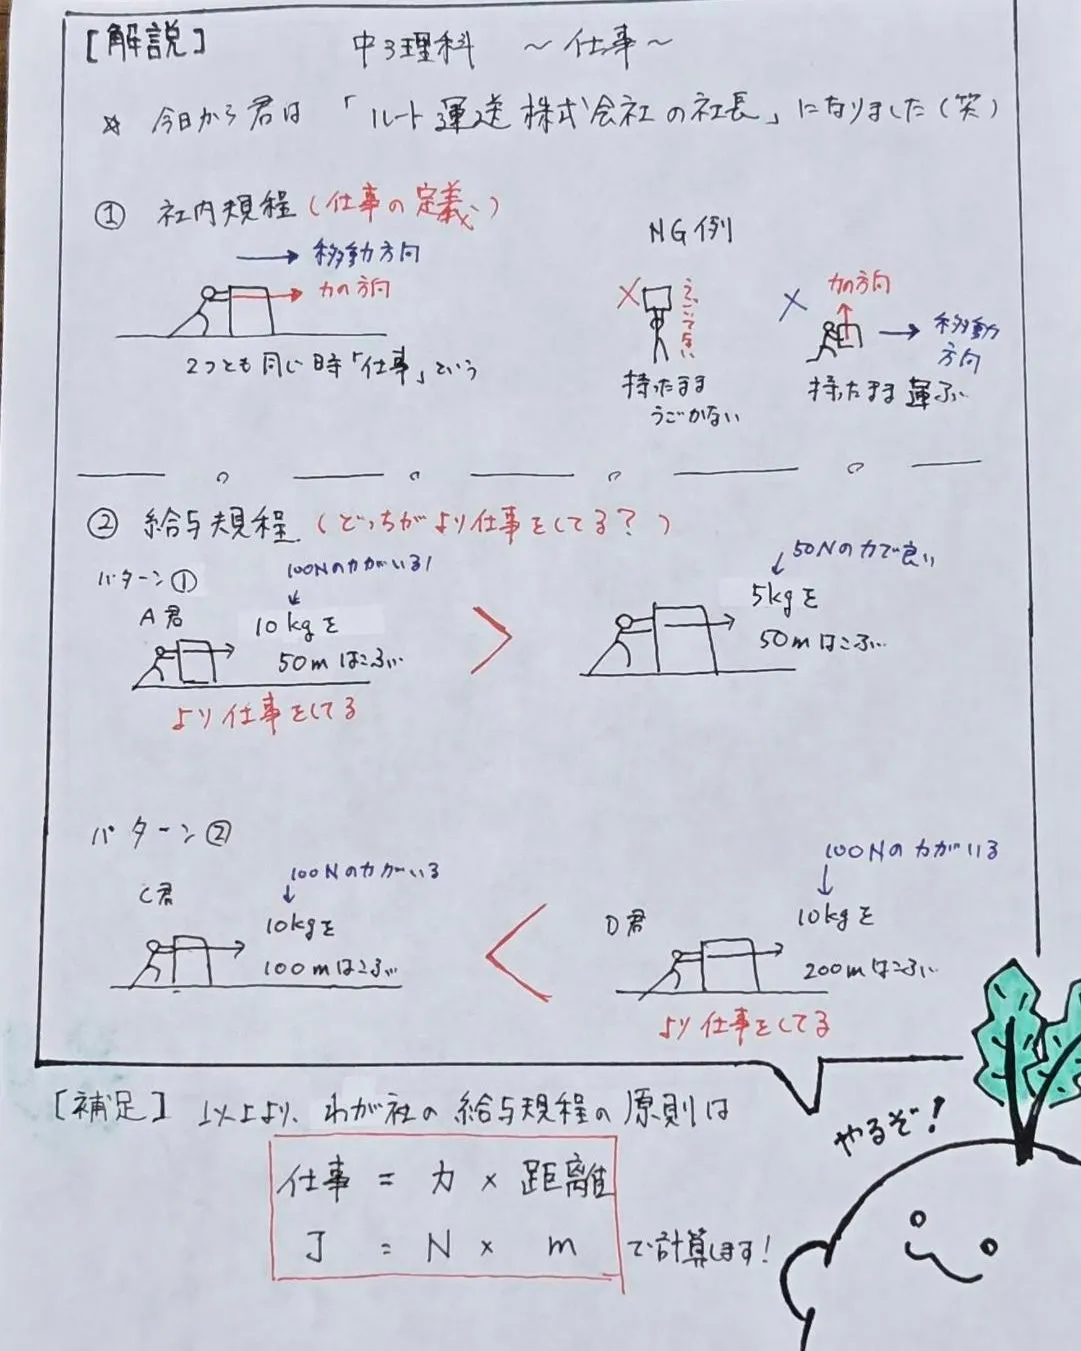 [解説] 中3理科 〜仕事〜
☆ 今日から君は「ルート運送株式会社の社長」になりました(笑)
① 社内規程(仕事の定義)
→ 移動方向
力の方向
2つとも同じ時「仕事」という
NG例
×
うごいてない
持ったまま
うごかない
×
力の方向
→ 移動
方向
持ったまま運ぶ
② 給与規程(どっちがより仕事をしてる?)
パターン①
100Nの力がいる!
↓
A君
10kgを
50mはこぶ
より仕事をしてる
>
50Nの力で良い
↓
5kgを
50mはこぶ
パターン②
100Nの力がいる
↓
C君
10kgを
100mはこぶ
<
100Nの力がいる
↓
D君
10kgを
200mはこぶ
より仕事をしてる
[補足] 以上より、わが社の給与規程の原則は
仕事 = 力 × 距離
J = N × m で計算します!
やるぞ!